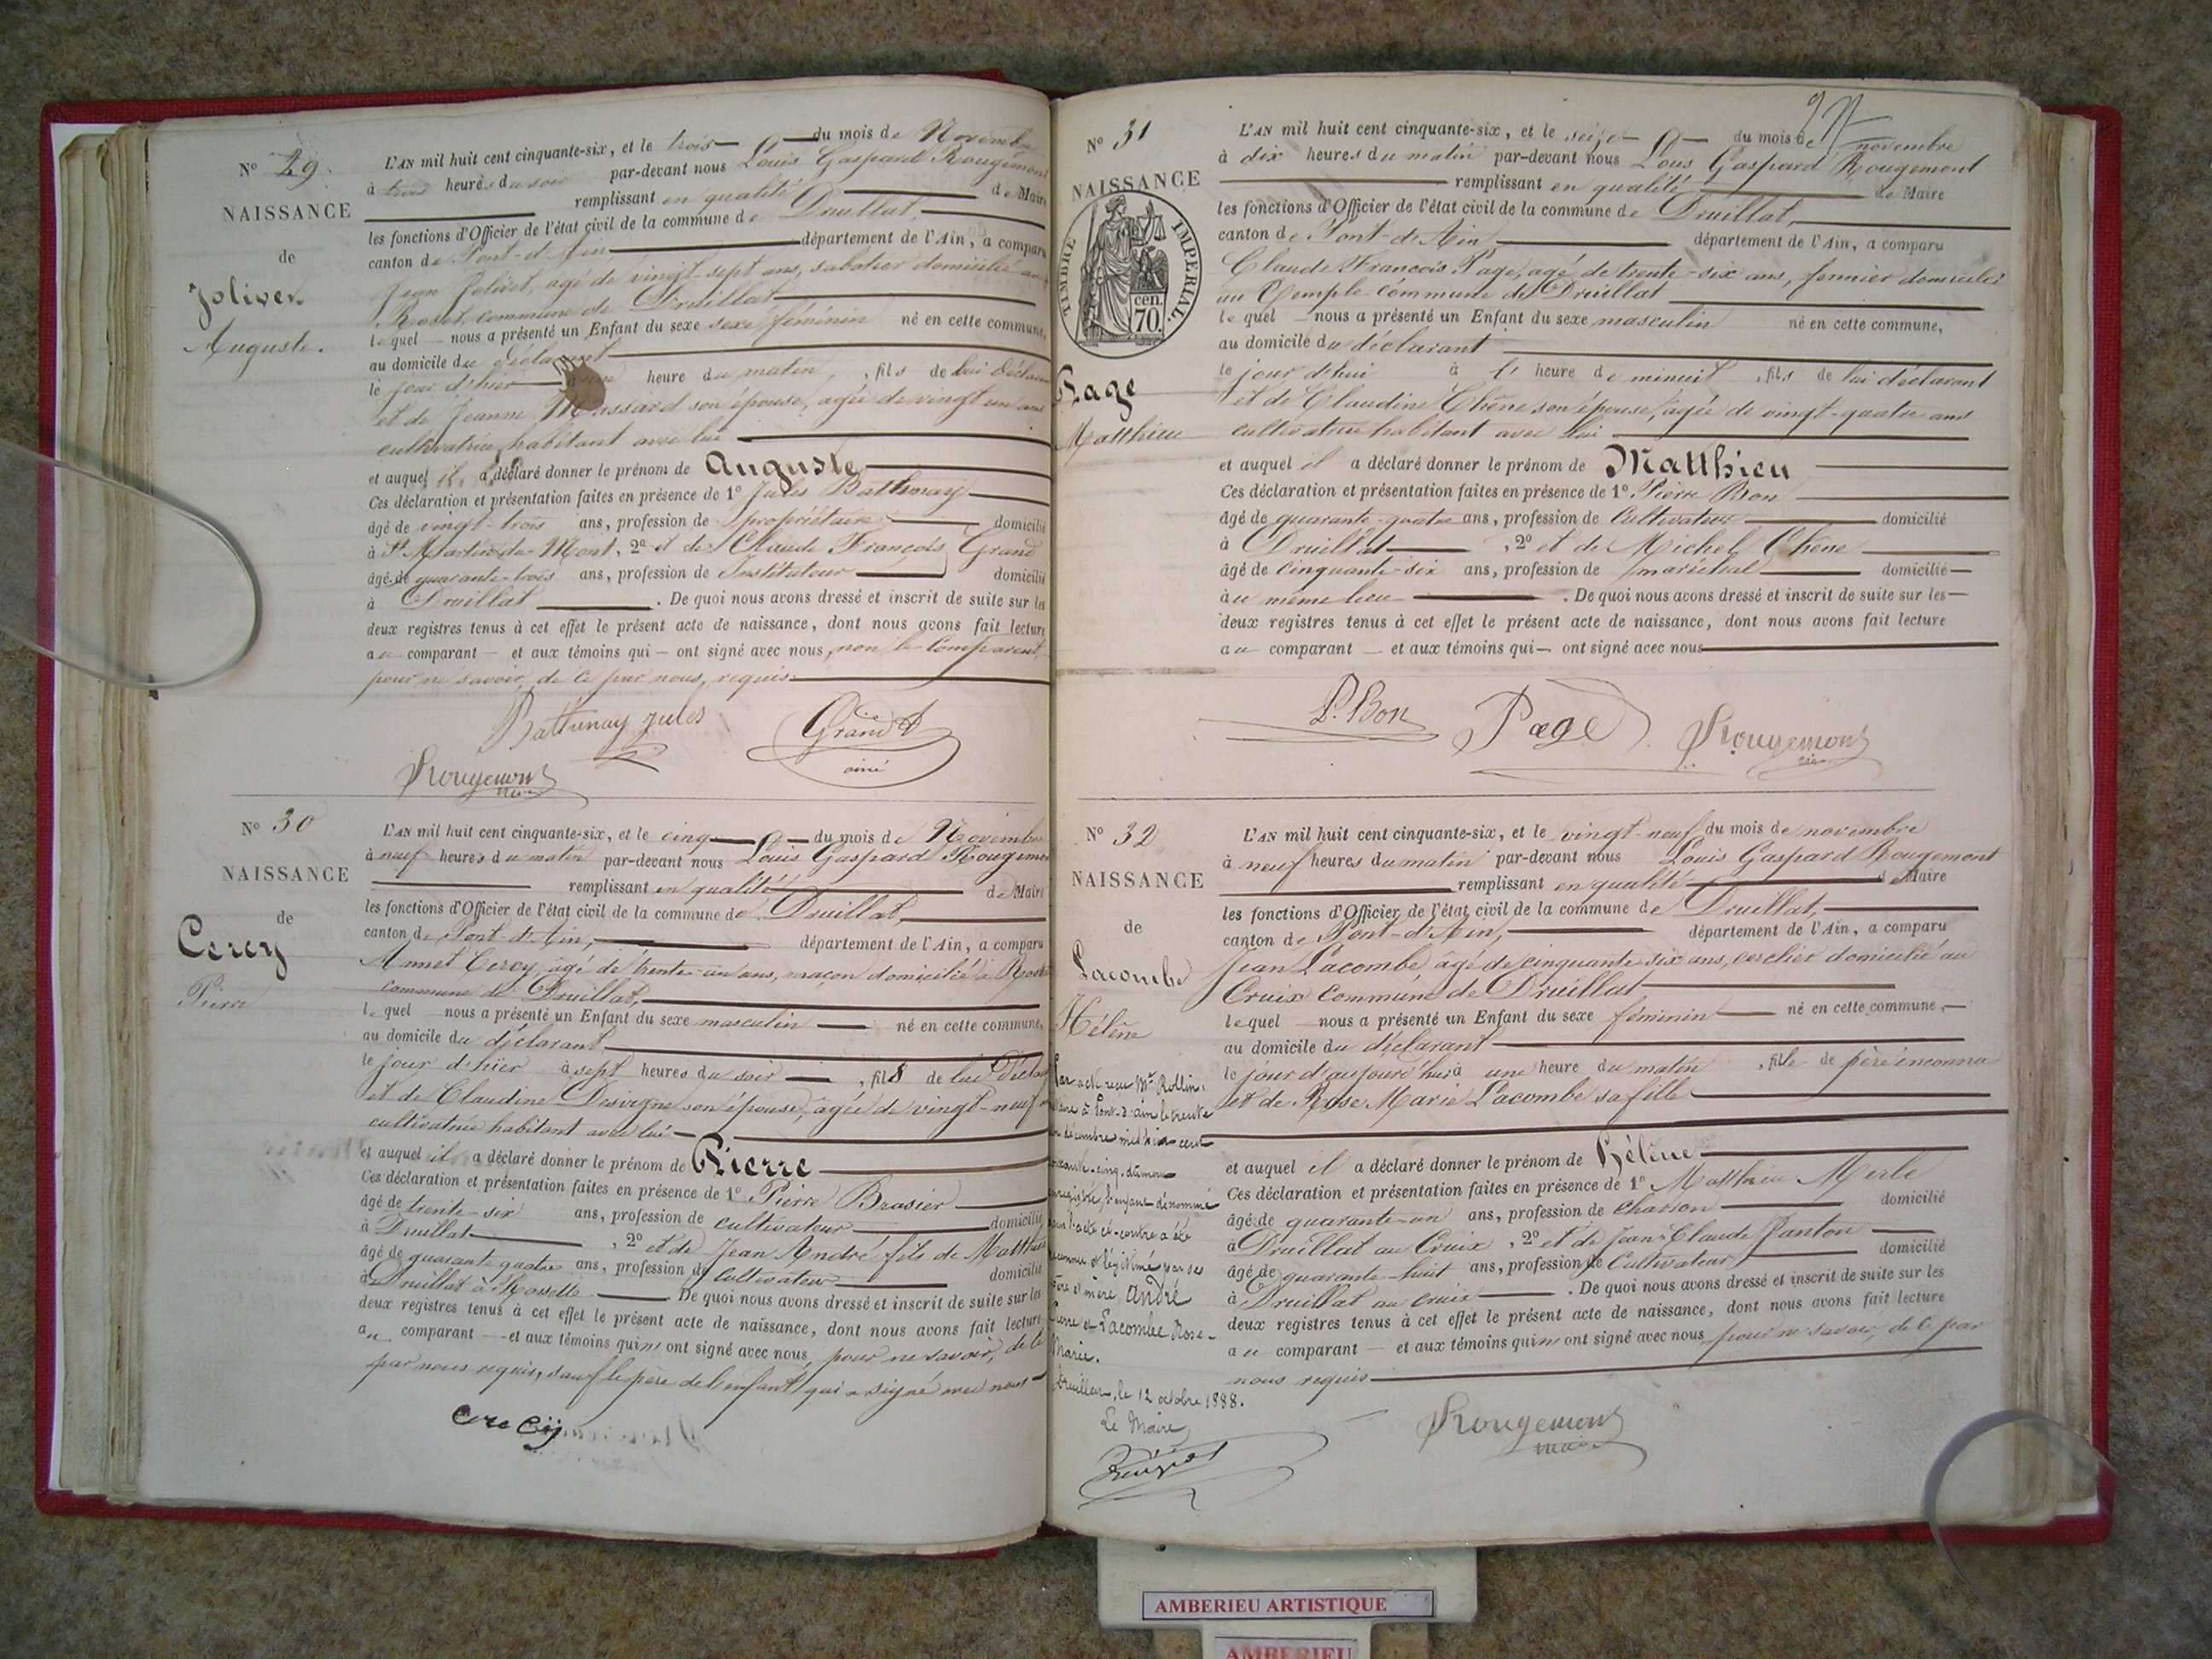 Nº 29.
NAISSANCE
de
Jolivet
Auguste.
L'AN mil huit cent cinquante-six, et le trois du mois de Novembre
à trois heures du soir par-devant nous Louis Gaspard Rougemont
remplissant en qualité de Maire
les fonctions d'Officier de l'état civil de la commune de Druillat,
canton de Pont-d'Ain département de l'Ain, a comparu
Jean Jolivet, agé de vingt-sept ans, sabotier domicilié
commune de Druillat
lequel nous a présenté un Enfant du sexe sexe féminin né en cette commune,
au domicile du déclarant
le jour d'hier heure du matin, fils de lui déclarant
et de Jeanne son épouse, agée de vingt un ans
cultivatrice habitant avec lui
et auquel il a déclaré donner le prénom de Auguste
Ces déclaration et présentation faites en présence de 1º Jules Bathunay
âgé de vingt-trois ans, profession de propriétaire domicilié
à St Martin du Mont, 2º et de Claude François Grand
âgé de quarante-trois ans, profession de Instituteur domicilié
à Druillat. De quoi nous avons dressé et inscrit de suite sur les
deux registres tenus à cet effet le présent acte de naissance, dont nous avons fait lecture
au comparant et aux témoins qui ont signé avec nous, non le Comparent
pour ne savoir, de ce par nous, requis
Battunay jules
Grand
ainé
Rougemont
Nº 30
NAISSANCE
de
Cercy
Pierre
L'AN mil huit cent cinquante-six, et le cinq du mois de Novembre
à neuf heures du matin par-devant nous Louis Gaspard Rougemont
remplissant en qualité de Maire
les fonctions d'Officier de l'état civil de la commune de Druillat,
canton de Pont-d'Ain, département de l'Ain, a comparu
Annet Cercy, âgé de trente-un ans, maçon domicilié à
commune de Druillat,
lequel nous a présenté un Enfant du sexe masculin né en cette commune,
au domicile du déclarant
le jour d'hier à sept heures du soir, fils de lui
et de Claudine Desvigne son épouse, âgée de vingt-neuf
cultivatrice habitant avec lui
et auquel il a déclaré donner le prénom de Pierre
Ces déclaration et présentation faites en présence de 1º Pierre Brasier
âgé de trente-six ans, profession de cultivateur domicilié
à Druillat, 2º et de Jean André fils de Matthieu
âgé de quarante quatre ans, profession de Cultivateur domicilié
à Druillat à Rossette. De quoi nous avons dressé et inscrit de suite sur les
deux registres tenus à cet effet le présent acte de naissance, dont nous avons fait lecture
au comparant et aux témoins qui n'ont signé avec nous, pour ne savoir, de ce
par nous requis, sauf le père de l'enfant qui a signé avec nous
Nº 31
NAISSANCE
TIMBRE IMPERIAL
cen.
70.
Page
Matthieu
L'AN mil huit cent cinquante-six, et le seize du mois de novembre
à dix heures du matin par-devant nous Louis Gaspard Rougemont
remplissant en qualité de Maire
les fonctions d'Officier de l'état civil de la commune de Druillat,
canton de Pont-d'Ain département de l'Ain, a comparu
Claude François Page, agé de trente-six ans, fermier domicilié
au Temple commune de Druillat
lequel nous a présenté un Enfant du sexe masculin né en cette commune,
au domicile du déclarant
le jour d'hui à l' heure de minuit, fils de lui déclarant
et de Claudine Chêne son épouse, âgée de vingt-quatre ans
cultivatrice habitant avec lui
et auquel il a déclaré donner le prénom de Matthieu
Ces déclaration et présentation faites en présence de 1º Pierre Bon
âgé de quarante-quatre ans, profession de Cultivateur domicilié
à Druillat, 2º et de Michel Chêne
âgé de Cinquante-six ans, profession de maréchal domicilié
à au même lieu. De quoi nous avons dressé et inscrit de suite sur les
deux registres tenus à cet effet le présent acte de naissance, dont nous avons fait lecture
au comparant et aux témoins qui ont signé avec nous
P. Bon
Page
Rougemont
Nº 32
NAISSANCE
de
Lacombe
Hélène
L'AN mil huit cent cinquante-six, et le vingt-neuf du mois de novembre
à neuf heures du matin par-devant nous Louis Gaspard Rougemont
remplissant en qualité de Maire
les fonctions d'Officier de l'état civil de la commune de Druillat,
canton de Pont-d'Ain, département de l'Ain, a comparu
Jean Lacombe âgé de cinquante-six ans, cerclier domicilié au
Cruix Commune de Druillat
lequel nous a présenté un Enfant du sexe féminin né en cette commune,
au domicile du déclarant
le jour d'aujourd'hui à une heure du matin, fille de père inconnu
et de Rose Marie Lacombe sa fille
et auquel il a déclaré donner le prénom de Hélène
Ces déclaration et présentation faites en présence de 1º Matthieu Merle
âgé de quarante-un ans, profession de Charron domicilié
à Druillat au Cruix, 2º et de Jean-Claude Janton
âgé de quarante-huit ans, profession de Cultivateur domicilié
à Druillat au Cruix. De quoi nous avons dressé et inscrit de suite sur les
deux registres tenus à cet effet le présent acte de naissance, dont nous avons fait lecture
au comparant et aux témoins qui n'ont signé avec nous pour ne savoir, de ce par
nous requis
Rougemont
Par acte reçu Me Rollin,
à Pont-d'ain le trente
décembre mil huit cent
cinq, dûment
enregistré, l'enfant dénommé
dans l'acte ci-contre a été
reconnu et légitimé par ses
père et mère André
et Lacombe Rose-
Marie.
Druillat, le 12 octobre 1888.
Le Maire
AMBERIEU ARTISTIQUE
AMBERIEU